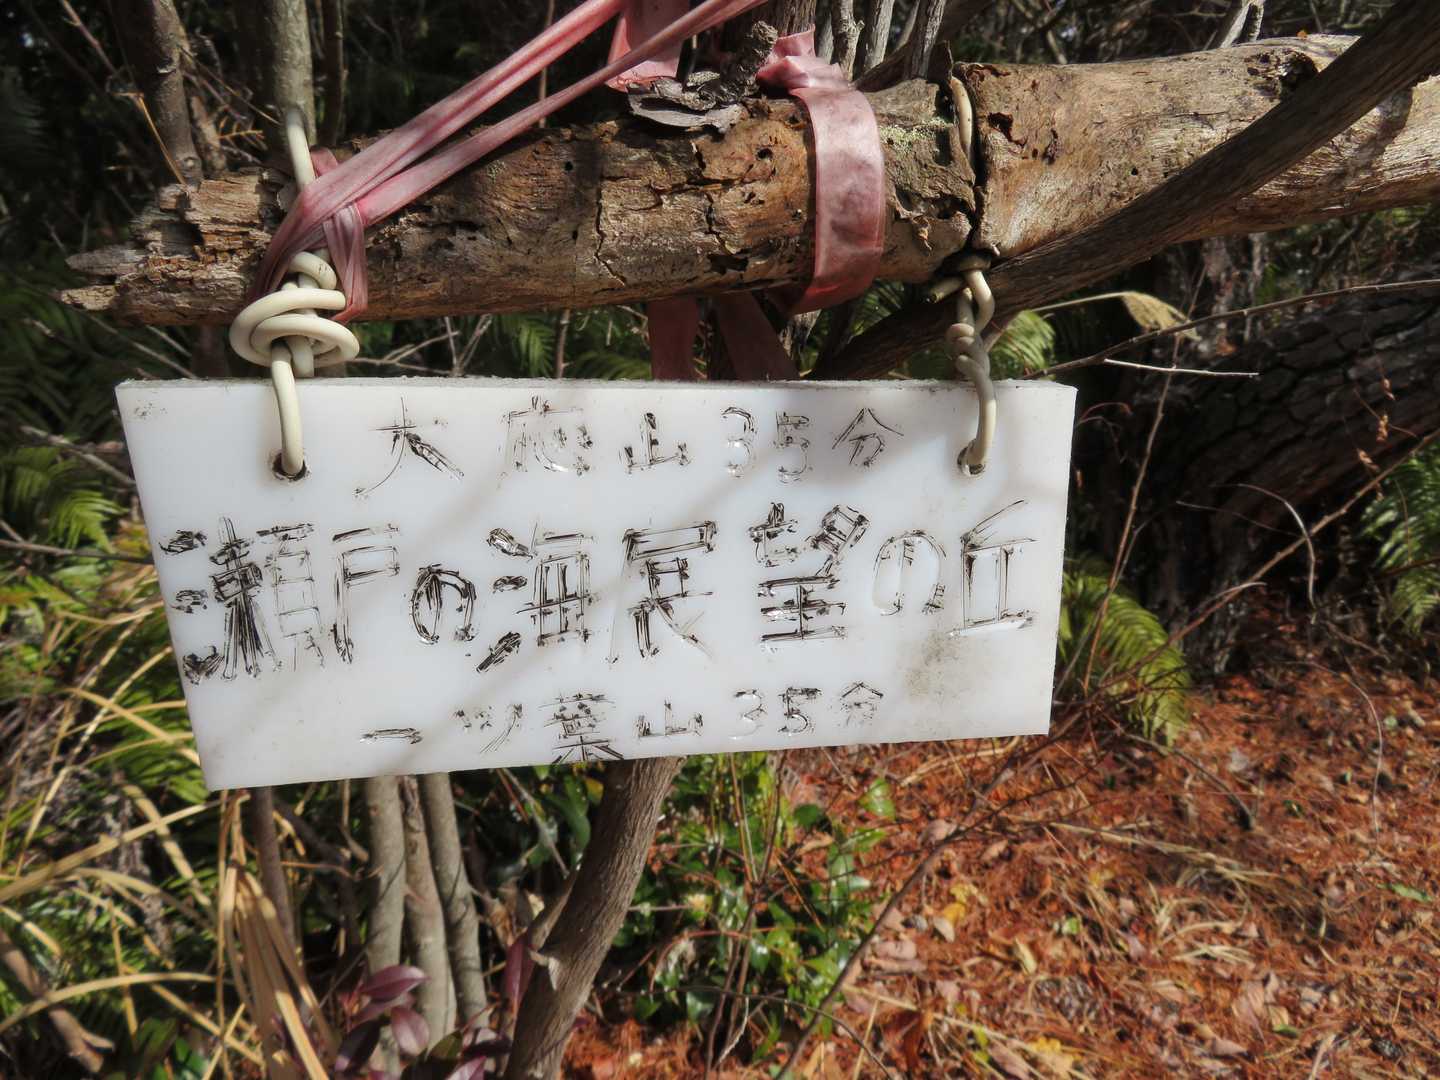 大爬山35分
瀬戸の海展望の丘
一ツ葉山35分